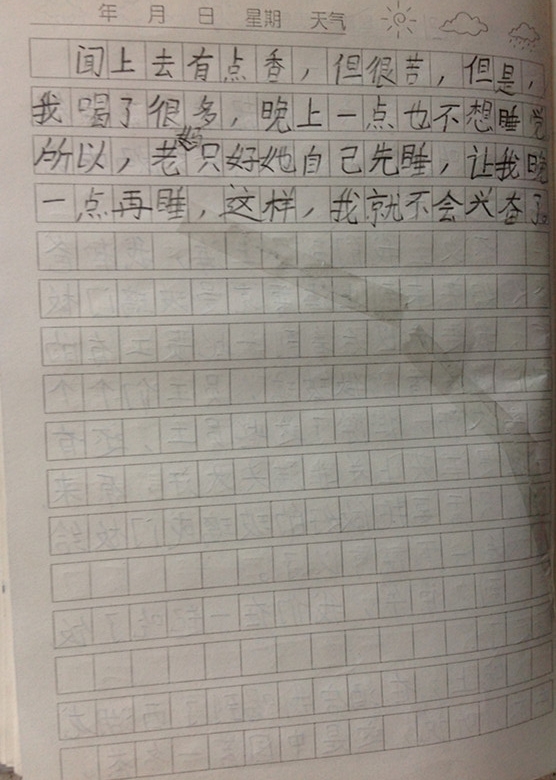 年 月 日 星期 天气
闻上去有点香，但很苦，但是，
我喝了很多，晚上一点也不想睡觉
所以，老妈只好她自己先睡，让我晚
一点再睡，这样，我就不会兴奋了。